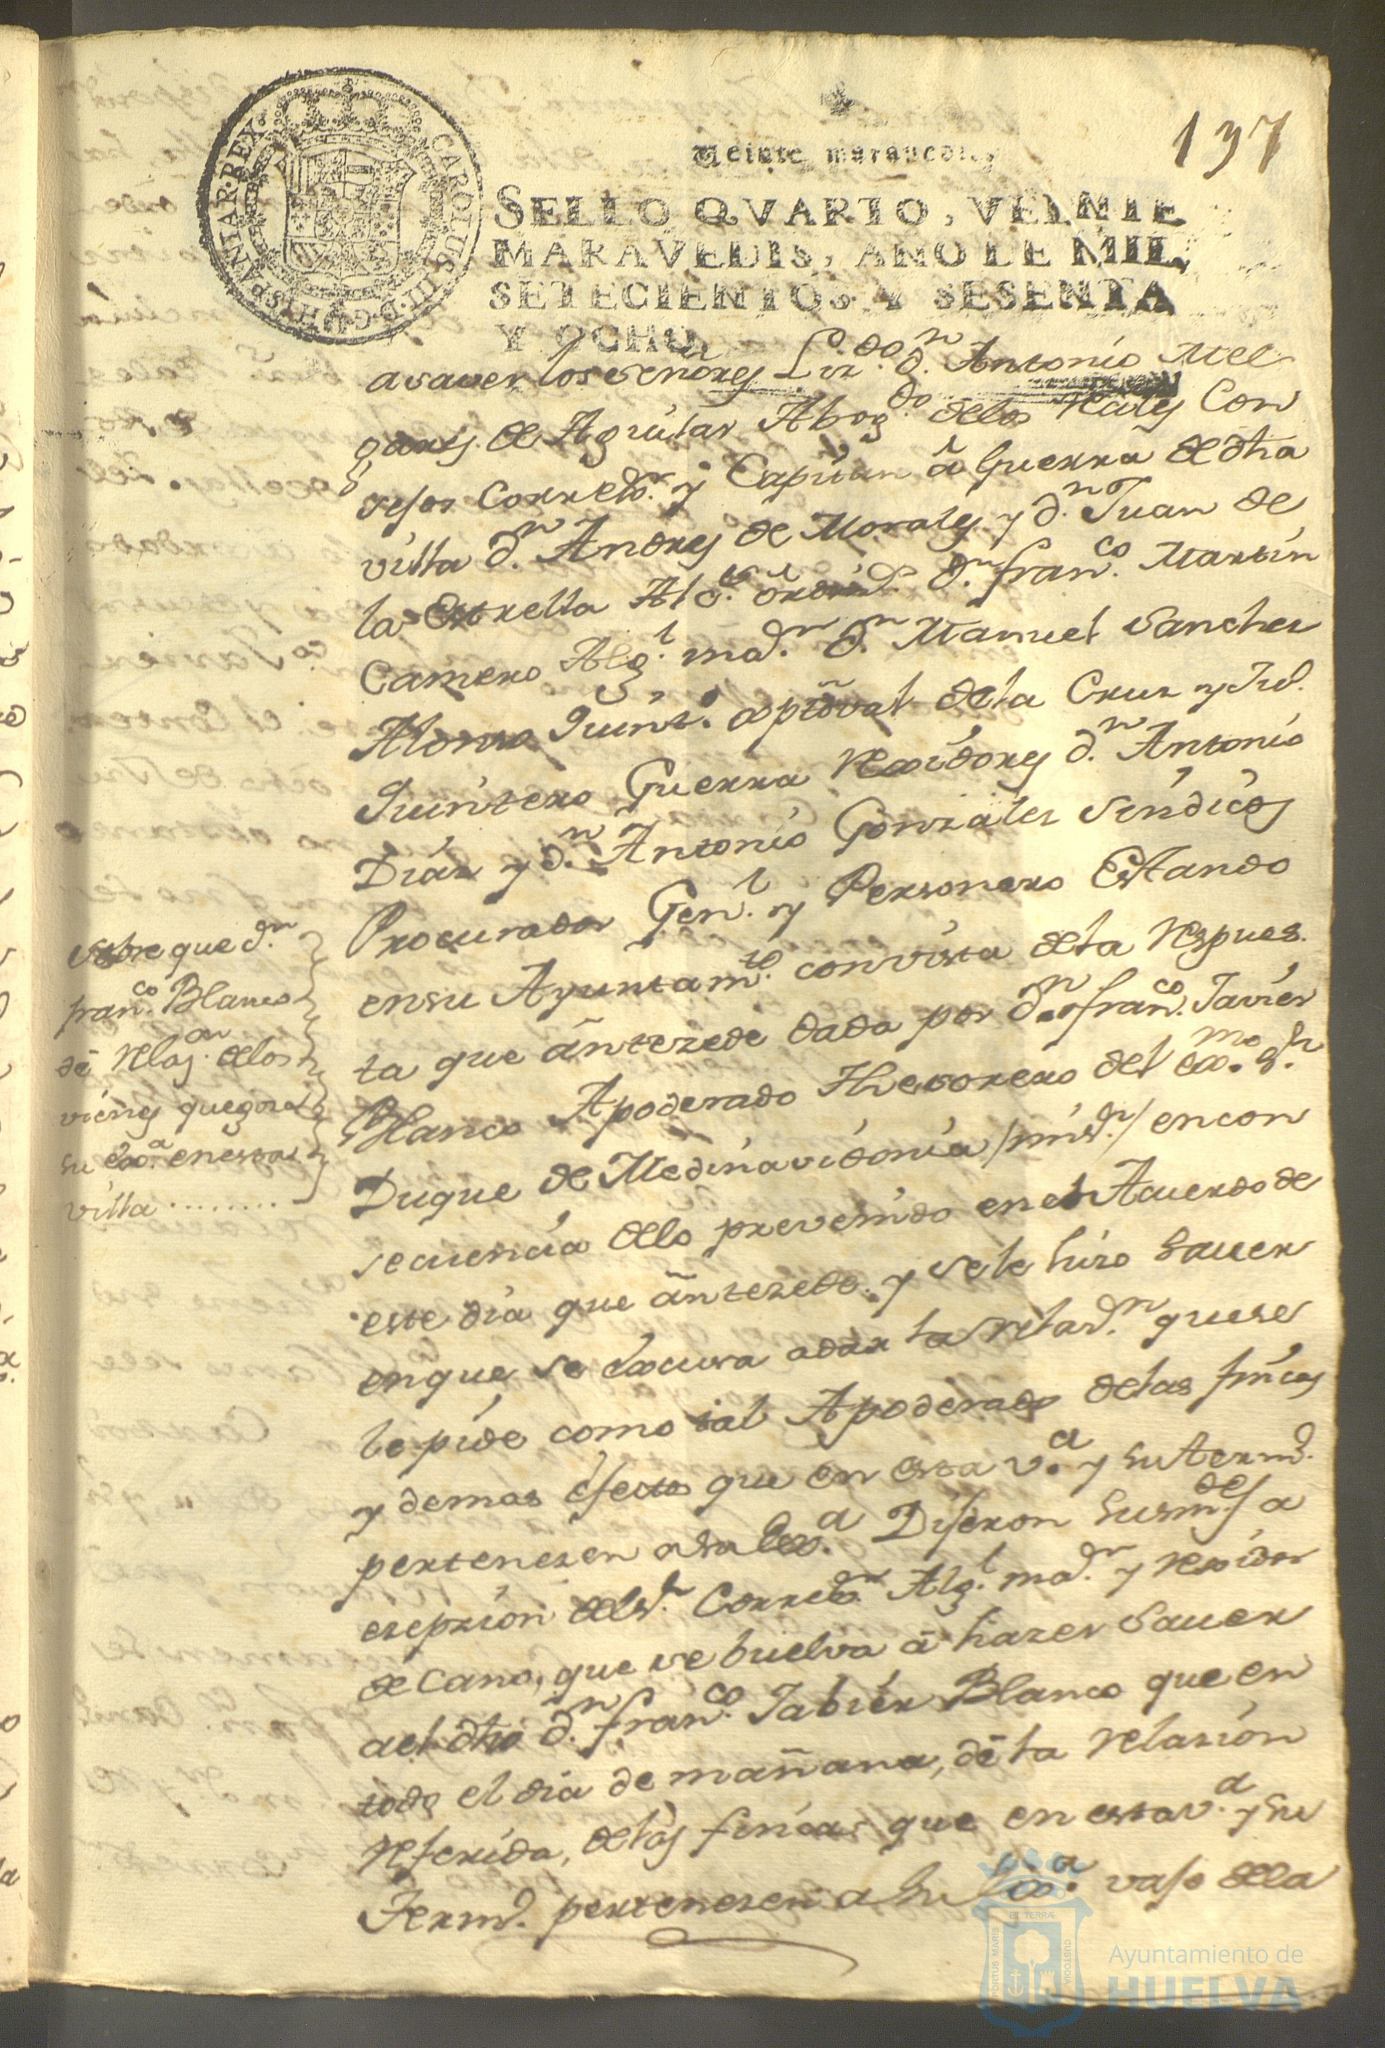 137
CAROLUS III D G HISPANIAR REX
Veinte marauedis
SELLO QVARTO, VEINTE
MARAVEDIS, AÑO DE MIL
SETECIENTOS Y SESENTA
Y OCHO.
a saver los señores Liz.do d.n Antonio Mel
garej de Aguilar Abog.do delos Reales Con
sejos Corred.r y Capitan â Guerra de dha
villa d.n Andres de Morales y d.n Juan de
la Estrella Alc.s ordin.s d.n fran.co Martin
Camero Alg.l ma.r d.n Manuel Sanches
Alonso Quint.o xptoval dela Cruz y Ju.o
Quintero Guerra Rexidores d.n Antonio
Diaz y d.n Antonio Gonzales Sindicos
Procurador Gen.l y Personero Estando
ensu Ayuntam.to con vista dela Respues
ta que antezede dada por d.n fran.co Javier
Blanco Apoderado Thesorero del ex.mo S.or
Duque de Medinasidonia /mi s.r/ encon
secuencia delo prevenido en el Acuerdo de
este dia que antezede y sele hizo saver
enque se excusa adar la relaz.n quese
le pide como tal Apoderado delas fincas
y demas efectos que en esta v.a y su term.o
pertenezen a su Ex.a Dijeron susm.des a
ezepzion del s.r Corred.r Alg.l ma.r y Rexidor
decano, que se buelva â hazer saver
ael dho d.n fran.co Jabier Blanco que en
todo el dia de mañana, dê la relazion
referida, delas fincas que en esta v.a y su
Term.o pertenezen a su Ex.a vajo dela
sobre que d.n
fran.co Blanco
dê relaz.on delos
vienes que goza
su Ex.a en esta
villa ........
PORTUS MARIS
ET TERRÆ
CUSTODIA
Ayuntamiento de
HUELVA